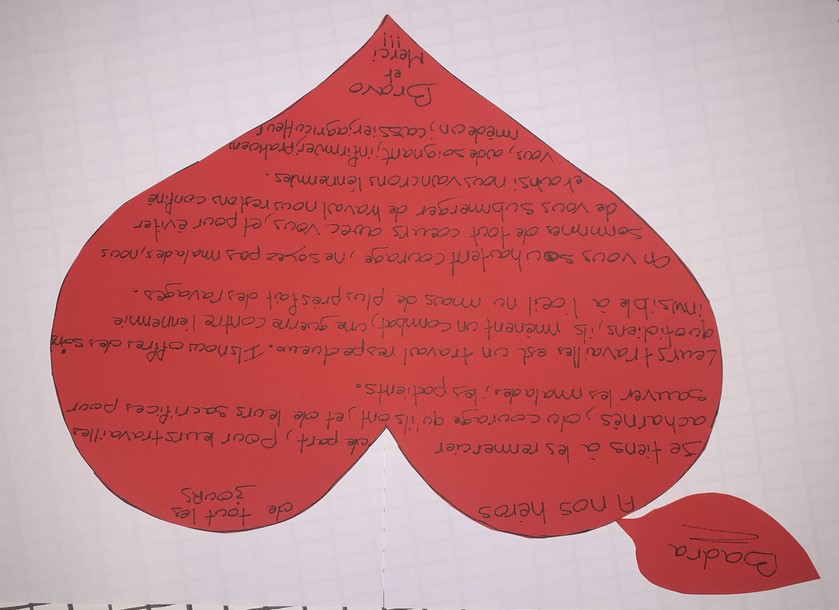 Badra
A nos héros
de tout les
jours
Je tiens à les remercier
de part, Pour leurs travailles
acharnés, du courage qu'ils ont, et de leurs sacrifices pour
sauver les malades, les patients.
Leurs travailles est un travail respectueux. Ils nous offres des soins
quotidiens, ils mènent un combat, une guerre contre l'ennemie
invisible à l'œil nu mais de plus près fait des ravages.
On vous souhaitent courage, ne soyez pas malades, nous
sommes de tout cœurs avec vous, et pour éviter
de vous submerger de travail nous restons confiné
et ainsi nous vaincrons l'ennemies.
vous, aide soignant, infirmier,
medecin, caissier, agriculteur
Bravo
et
Merci
!!!